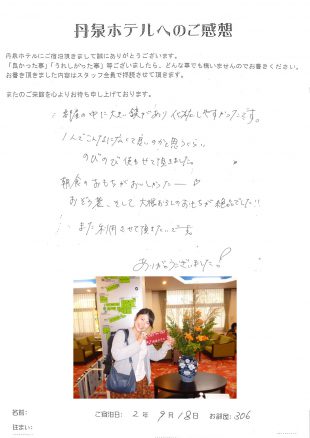 丹泉ホテルへのご感想
丹泉ホテルにご宿泊頂きまして誠にありがとうございます。
「良かった事」「うれしかった事」等ございましたら、どんな事でも構いませんのでお書きください。
お書き頂きました内容はスタッフ全員で拝読させて頂きます。
またのご来館を心よりお待ち申し上げております。
部屋の中に大きい鏡があり 化粧しやすかったです。
1人でこんなに広くて良いのかと思うくらい
のびのび使わせて頂きました。
朝食のおもちがおいしかったー
おぞう煮、そして大根おろしのおもちが絶品でした!!
また利用させて頂きたいです。
ありがとうございました!
名前:
ご宿泊日: 2年 9月 18日 お部屋: 306
住まい: